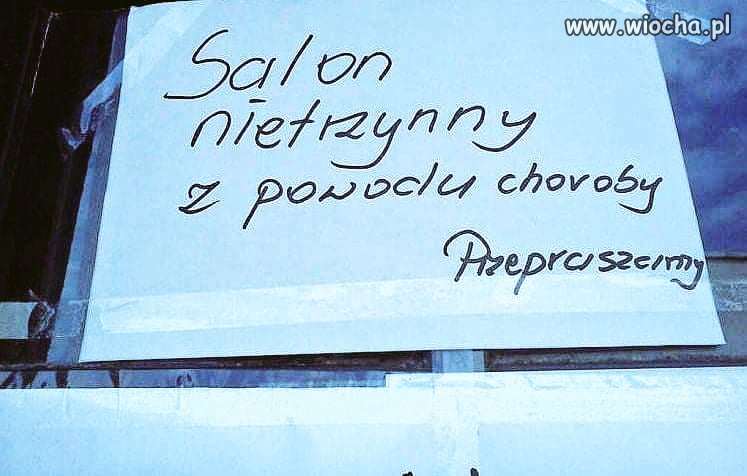 www.wiocha.pl
Salon
nietrzynny
z powodu choroby
Przepraszamy